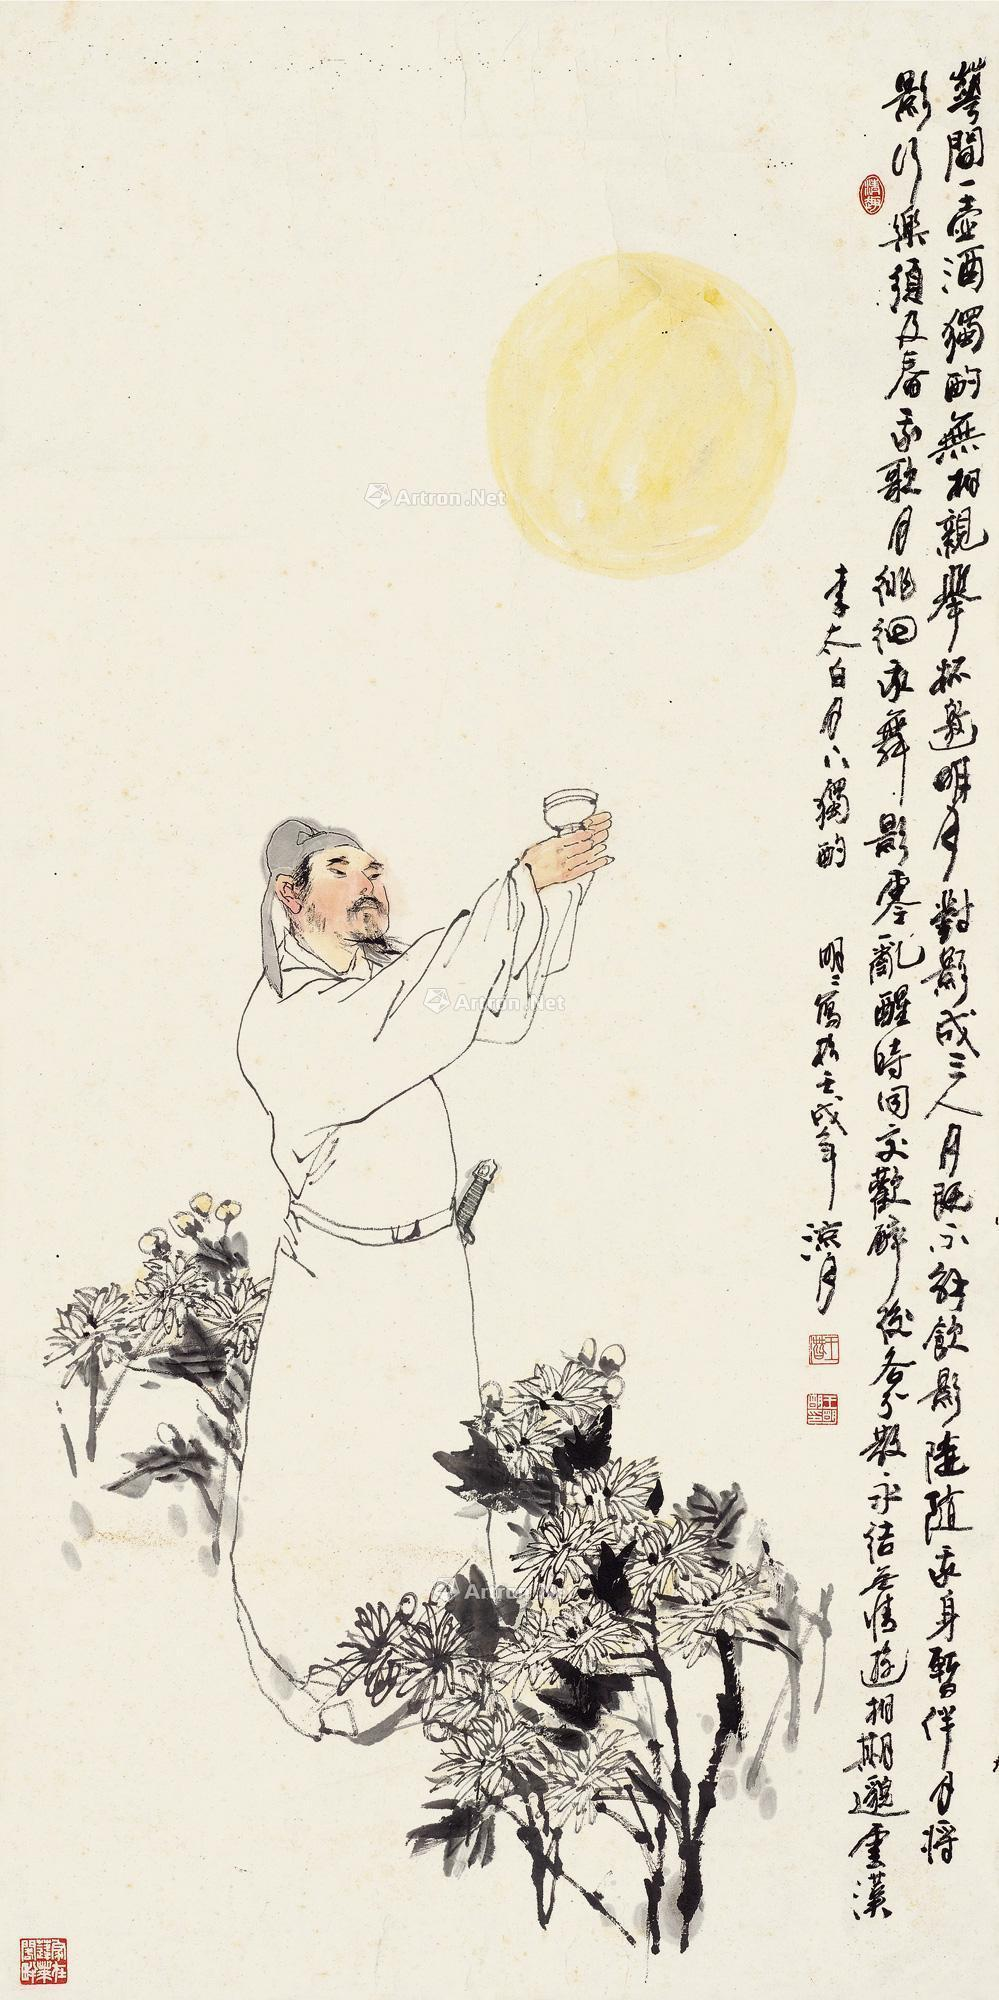 花間一壺酒獨酌無相親舉杯邀明月對影成三人月既不解飲影陡随我身暫伴月將
影行樂須及春我歌月徘徊我舞影零亂醒時同交歡醉後各分散永結無情遊相期邈雲漢
李太白月下獨酌
明明寫於壬戌年
涼月
Artron.Net
Artron.Net
Artron.Net